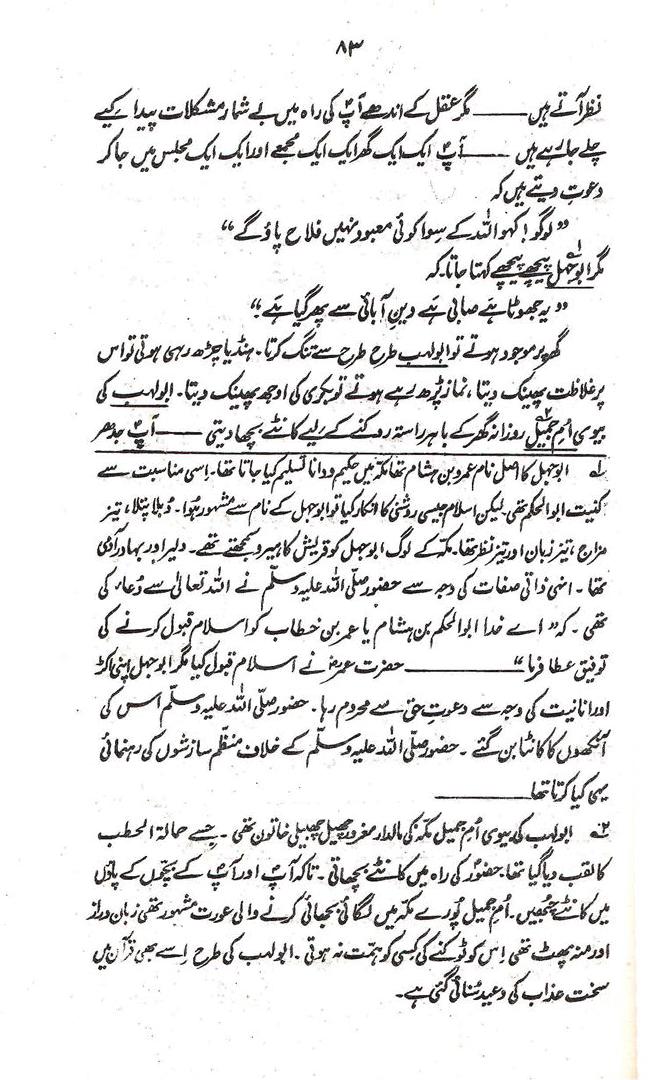 ۸۳
نظر آتے ہیں ——— مگر عقل کے اندھے آپؐ کی راہ میں بے شمار مشکلات پیدا کیے
چلے جا رہے ہیں ——— آپؐ ایک ایک گھر ایک ایک مجمعے اور ایک ایک مجلس میں جا کر
دعوت دیتے ہیں کہ
”لوگو! کہو اللہ کے سوا کوئی معبود نہیں فلاح پاؤ گے“
مگر ابوجہل۱ پیچھے پیچھے کہتا جاتا۔ کہ
”یہ جھوٹا ہے صابی ہے دینِ آبائی سے پھر گیا ہے“
گھر پر موجود ہوتے تو ابولہب طرح طرح سے تنگ کرتا۔ ہنڈیا چڑھ رہی ہوتی تو اس
پر غلاظت پھینک دیتا، نماز پڑھ رہے ہوتے تو بکری کی اوجھ پھینک دیتا۔ ابولہب کی
بیوی اُمِ جمیل۲ روزانہ گھر کے باہر راستہ روکنے کے لیے کانٹے بچھا دیتی ——— آپؐ جدھر
۱؎ ابوجہل کا اصل نام عمرو بن ہشام تھا مکہ میں حکیم و دانا تسلیم کیا جاتا تھا۔ اسی مناسبت سے
کنیت ابوالحکم تھی۔ لیکن اسلام جیسی روشنی کا انکار کیا تو ابوجہل کے نام سے مشہور ہوا۔ دُبلا پتلا، تیز
مزاج، تیز زبان اور تیز نظر تھا۔ مکہ کے لوگ ابوجہل کو قریش کا ہیرو سمجھتے تھے۔ دلیر اور بہادر آدمی
تھا۔ انہی ذاتی صفات کی وجہ سے حضور صلّی اللہ علیہ وسلّم نے اللہ تعالیٰ سے دُعاء کی
تھی۔ کہ ”اے خدا ابوالحکم بن ہشام یا عمر بن خطاب کو اسلام قبول کرنے کی
توفیق عطا فرما“ ——— حضرت عمرؓ نے اسلام قبول کیا مگر ابوجہل اپنی اکڑ
اور انانیت کی وجہ سے دعوتِ حق سے محروم رہا۔ حضور صلّی اللہ علیہ وسلّم اس کی
آنکھوں کا کانٹا بن گئے۔ حضور صلّی اللہ علیہ وسلّم کے خلاف منظّم سازشوں کی رہنمائی
یہی کیا کرتا تھا ———
۲؎ ابولہب کی بیوی اُمِ جمیل مکّہ کی مالدار مغرور چھیل چھبیلی خاتون تھی۔ جسے حمالۃ الحطب
کا لقب دیا گیا تھا۔ حضورؐ کی راہ میں کانٹے بچھاتی۔ تاکہ آپؐ اور آپؐ کے بچّوں کے پاؤں
میں کانٹے چُبھیں۔ اُمِ جمیل پُورے مکّہ میں لگائی بجھائی کرنے والی عورت مشہور تھی زبان دراز
اور منہ پھٹ تھی اس کو ٹوکنے کی کسی کو ہمّت نہ ہوتی۔ ابولہب کی طرح اِسے بھی قرآن میں
سخت عذاب کی وعید سُنائی گئی ہے۔